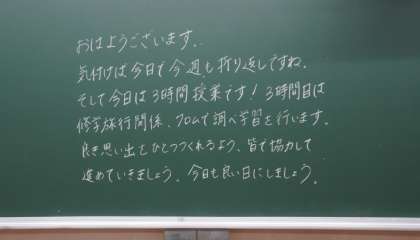 おはようございます。
気付けば今日で今週も折り返しですね。
そして今日は3時間授業です！3時間目は
修学旅行関係、クロムで調べ学習を行います。
良き思い出をひとつつくれるよう、皆で協力して
進めていきましょう。今日も良い日にしましょう。